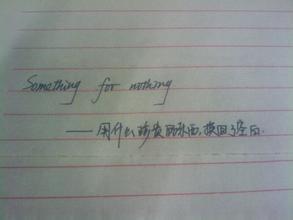 Something for nothing
——用什么珍贵的东西,换回了空白.